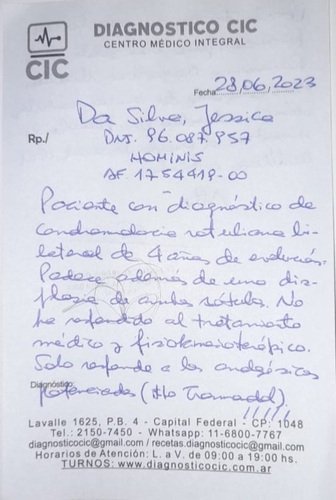 DIAGNOSTICO CIC
CENTRO MÉDICO INTEGRAL
CIC
Fecha: 28/06/2023
Da Silva, Jessica
Rp./ DNI. 96.087.957
HOMINIS
AF 1754419-00
Paciente con diagnóstico de
condromalacia rotuliana bi-
lateral de 4 años de evolución.
Padece además de una dis-
plasia de ambas rótulas. No
ha respondido al tratamiento
médico y fisiokinesioterápico.
Solo responde a los analgésicos
Diagnóstico:
potenciados (#lo Tramadol).
Lavalle 1625, P.B. 4 - Capital Federal - CP: 1048
Tel.: 2150-7450 - Whatsapp: 11-6800-7767
diagnosticocic@gmail.com / recetas.diagnosticocic@gmail.com
Horarios de Atención: L. a V. de 09:00 a 19:00 hs.
TURNOS: www.diagnosticocic.com.ar